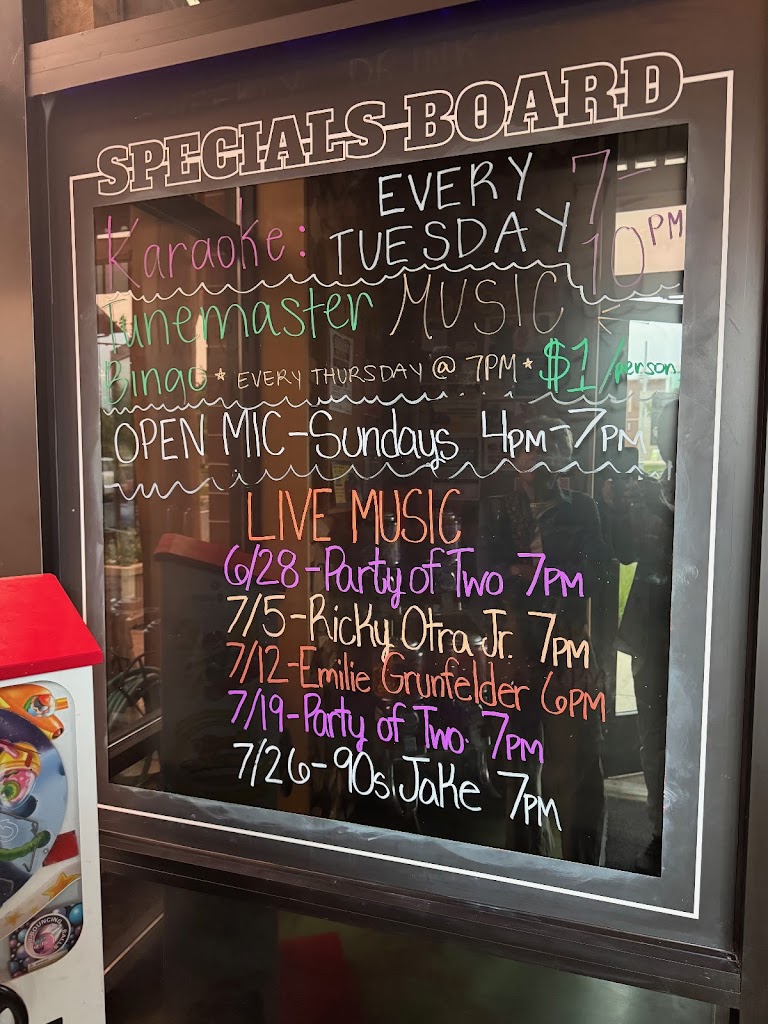 SPECIALS BOARD
Karaoke: EVERY TUESDAY 7-10PM
Tunemaster MUSIC
Bingo * EVERY THURSDAY @ 7PM * $1/person
OPEN MIC-Sundays 4PM-7PM
LIVE MUSIC
6/28-Party of Two 7PM
7/5-Ricky Otra Jr. 7PM
7/12-Emilie Grunfelder 6PM
7/19-Party of Two 7PM
7/26-90s Jake 7PM
BOUNCING
BALLS